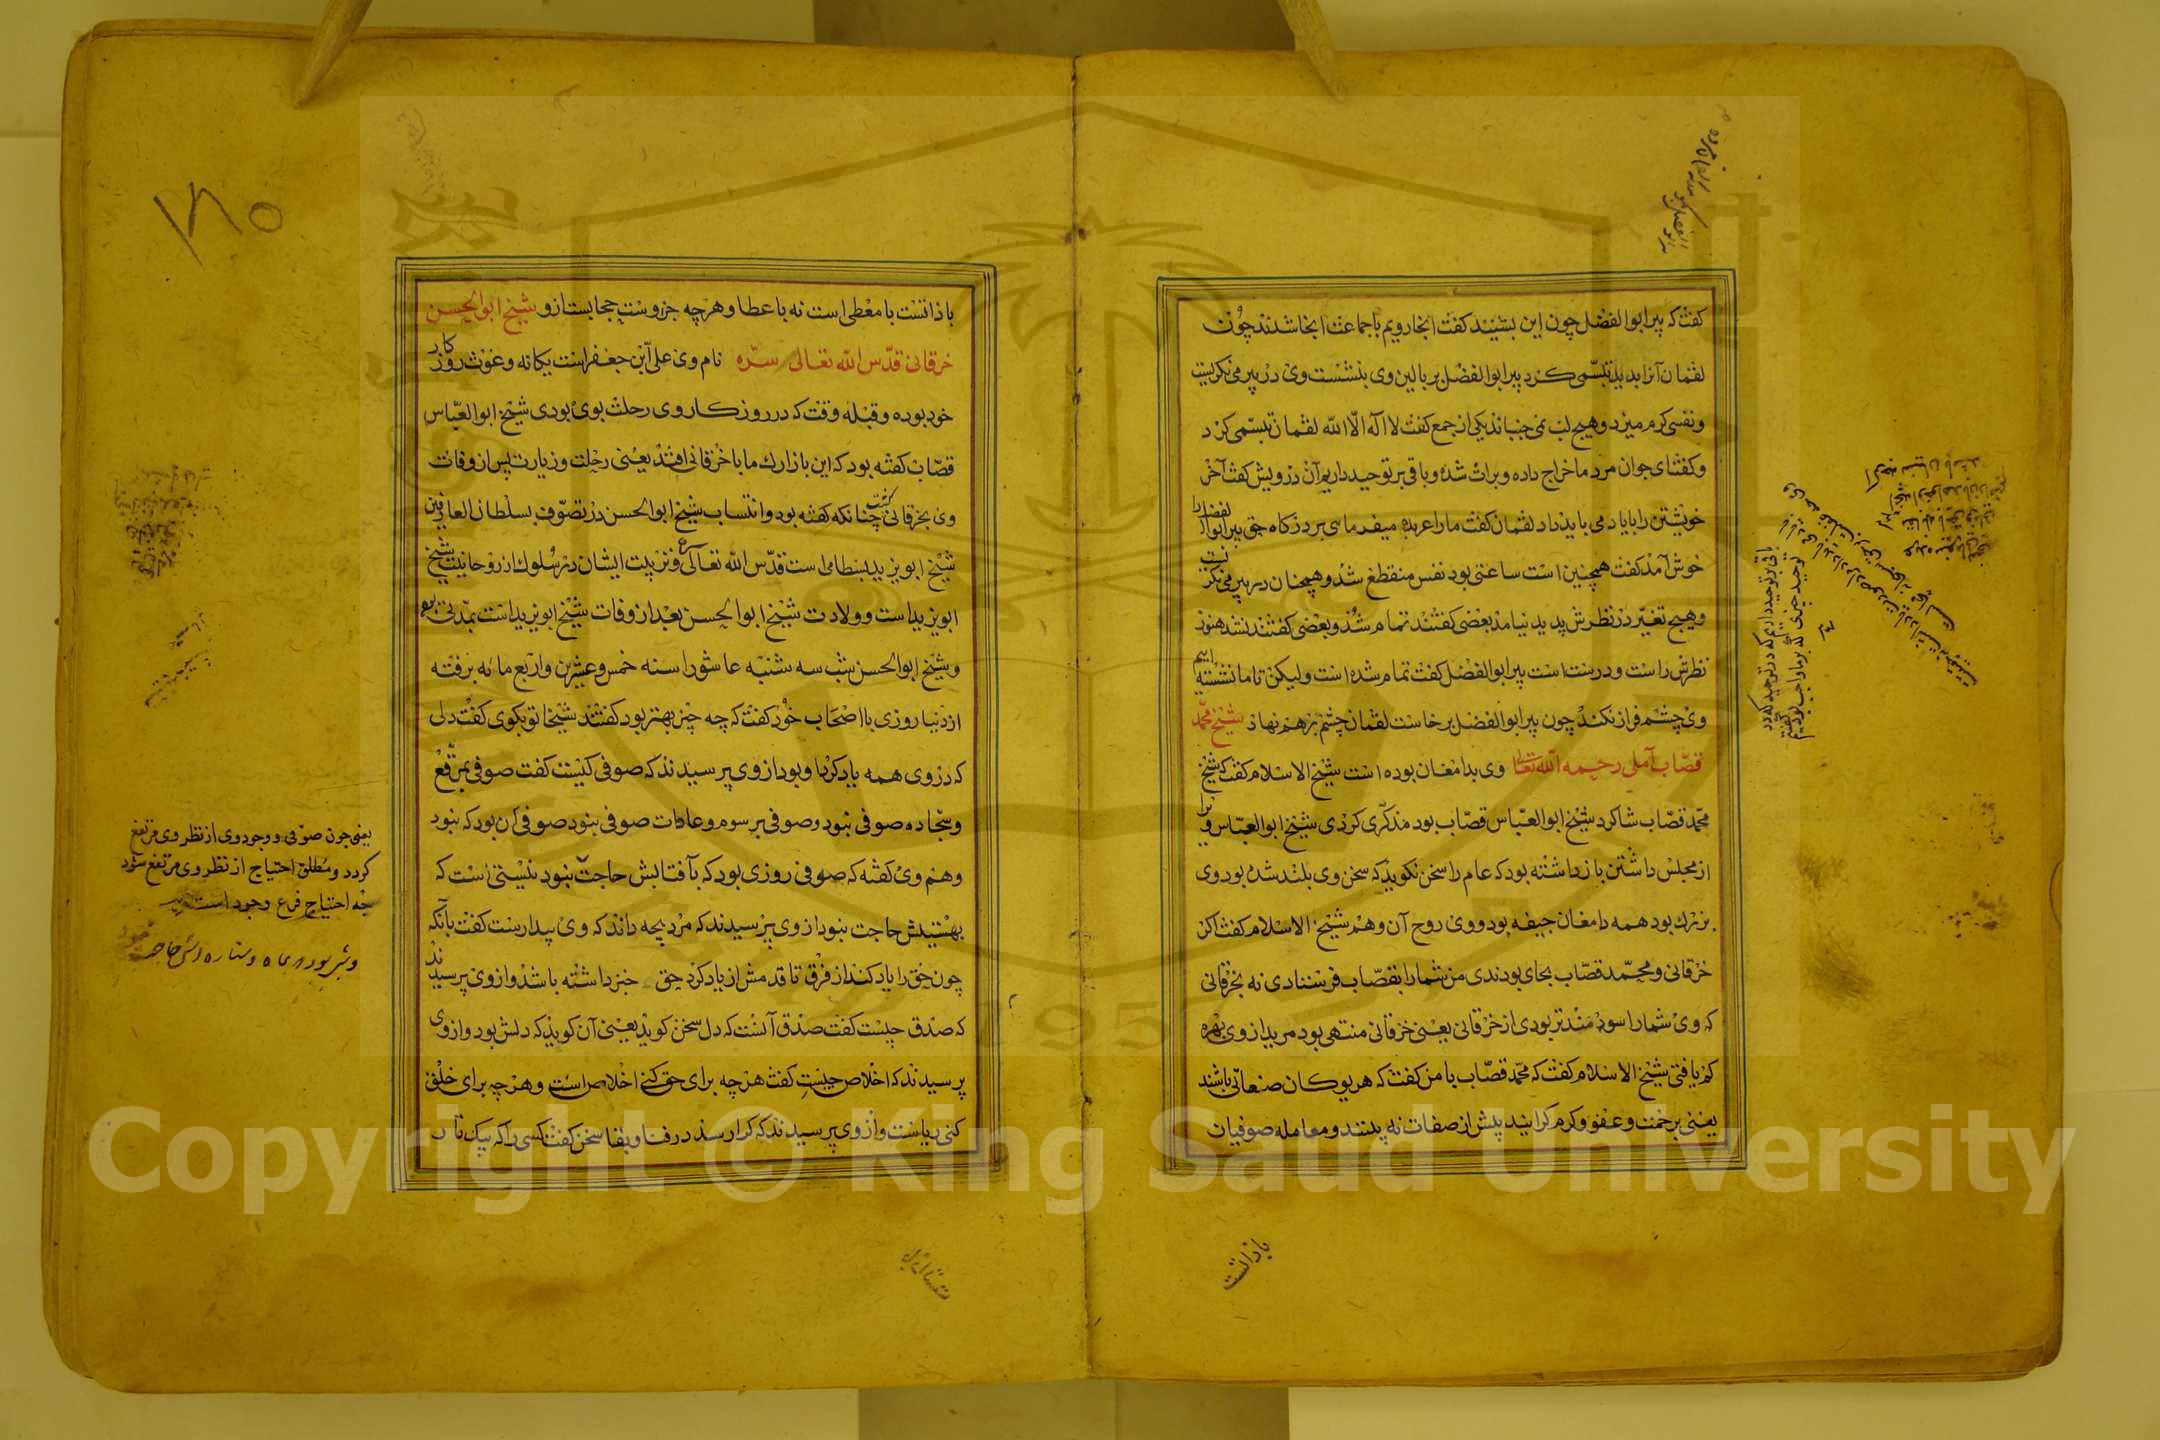 کفت که پیر ابوالفضل چون این بشنید کفت آنجا رویم با جماعت آنجا شدند چون
لقمان آنرا بدید تبسمی کرد پیر ابوالفضل بر بالین وی بنشست وی در پیر می نکریست
و نفسی کرم میزد و هیچ لب نمی جنباند یکی از جمع کفت لا اله الا الله لقمان تبسمی کرد
و کفت ای جوان مرد ما خراج داده و برات شده و باقی بر توحید داریم آن درویش کفت آخر
خویشتن را با یاد می باید داد لقمان کفت ما را عربده میفرمایی بر درکاه حق پیر ابوالفضل را
خوش آمد کفت همچنین است ساعتی بود نفس منقطع شد و همچنان در پیر می نکریست
و هیچ تغیر در نظرش پدید نیامد بعضی کفتند تمام شد و بعضی کفتند نشد هنوز
نظرش راست و درست است پیر ابوالفضل کفت تمام شده است ولیکن تا ما نشسته ایم
وی چشم فراز نکند چون پیر ابوالفضل برخاست لقمان چشم برهم نهاد شیخ محمد
قصاب آملی رحمه الله تعالی وی بدامغان بوده است شیخ الاسلام کفت که شیخ
محمد قصاب شاکرد شیخ ابوالعباس قصاب بود مذکری کردی شیخ ابوالعباس ویرا
از مجلس داشتن باز داشته بود که عام را سخن نکوید که سخن وی بلند شده بود وی
بزرک بود همه دامغان جیفه بود و وی روح آن و هم شیخ الاسلام کفت اکر
خرقانی و محمد قصاب بجای بودندی من شما را بقصاب فرستادی نه بخرقانی
که وی شما را سودمندتر بودی از خرقانی یعنی خرقانی منتهی بود مرید از وی بهره
کم یافتی شیخ الاسلام کفت که محمد قصاب با من کفت که هر یو کان صنعانی باشند
یعنی برحمت و عفو و کرم کرایند پیش از صفات نه پینند و معامله صوفیان
باذانست
باقی بر توحید داریم که در توحید که در
توحید چیزی که بر ما واجب بود
۱۸۵
با ذاتست با معطی است نه با عطا و هرچه جز وست حجابست ازو شیخ ابوالحسن
خرقانی قدس الله تعالی سره نام وی علی ابن جعفر است یکانه و غوث روزکار
خود بوده و قبله وقت که در روزکار وی رحلت بوی بودی شیخ ابوالعباس
قصاب کفته بود که این بازارک ما با خرقانی افتد یعنی رحلت و زیارت پس از وفات
وی بخرقانی کشت چنانکه کفته بود و انتساب شیخ ابوالحسن در تصوف بسلطان العارفین
شیخ ابویزید بسطامی است قدس الله تعالی سره و تربیت ایشان در سلوک از روحانیت شیخ
ابویزید است و ولادت شیخ ابوالحسن بعد از وفات شیخ ابویزید است بمدتی
و شیخ ابوالحسن شب سه شنبه عاشورا سنه خمس و عشرین و اربع مائه برفته
از دنیا روزی با اصحاب خود کفت که چه چیز بهتر بود کفتند شیخا تو بکوی کفت دلی
که در وی همه یاد کرد او بود از وی پرسیدند که صوفی کیست کفت صوفی بمرقع
و سجاده صوفی نبود و صوفی برسوم و عادات صوفی نبود صوفی آن بود که نبود
و هم وی کفته که صوفی روزی بود که بآفتابش حاجت نبود نیستی است که
بهستیش حاجت نبود از وی پرسیدند که مرد بچه داند که وی بیدارست کفت بآنکه
چون حق را یاد کند از فرق تا قدمش از یاد کرد حق خبر داشته باشد و از وی پرسیدند
که صدق چیست کفت صدق آنست که دل سخن کوید یعنی آن کوید که دلش بود و از وی
پرسیدند که اخلاص چیست کفت هرچه برای حق کنی اخلاص است و هرچه برای خلق
کنی ریاست و از وی پرسیدند که کرا رسد در فنا و بقا سخن کفت کسی را که بیک تار
یعنی چون صوفی و وجود وی از نظر وی مرتفع
کردد و مطلق احتیاج از نظر وی مرتفع شود
چه احتیاج فرع وجود است
و شبی بود که بماه و ستاره اش حاجت
Copyright © King Saud University